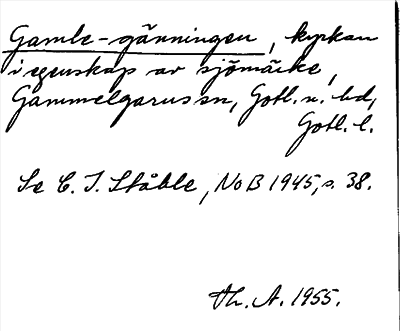 Gamle-gänningen, kyrkan
i egenskap av sjömärke,
Gammelgarns sn, Gotl. n. hd,
Gotl. l.
Se C. I. Ståhle, NoB 1945, s. 38.
Th. A. 1955.